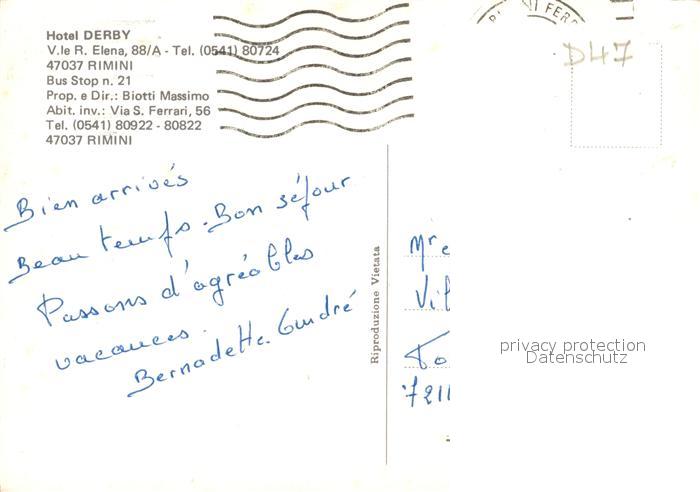 Hotel DERBY
V.le R. Elena, 88/A - Tel. (0541) 80724
47037 RIMINI
Bus Stop n. 21
Prop. e Dir.: Biotti Massimo
Abit. inv.: Via S. Ferrari, 56
Tel. (0541) 80922 - 80822
47037 RIMINI
D47
Bien arrivés
Beau temps. Bon séjour
Passons d'agréables
vacances.
Bernadette.
Riproduzione Vietata
privacy protection
Datenschutz